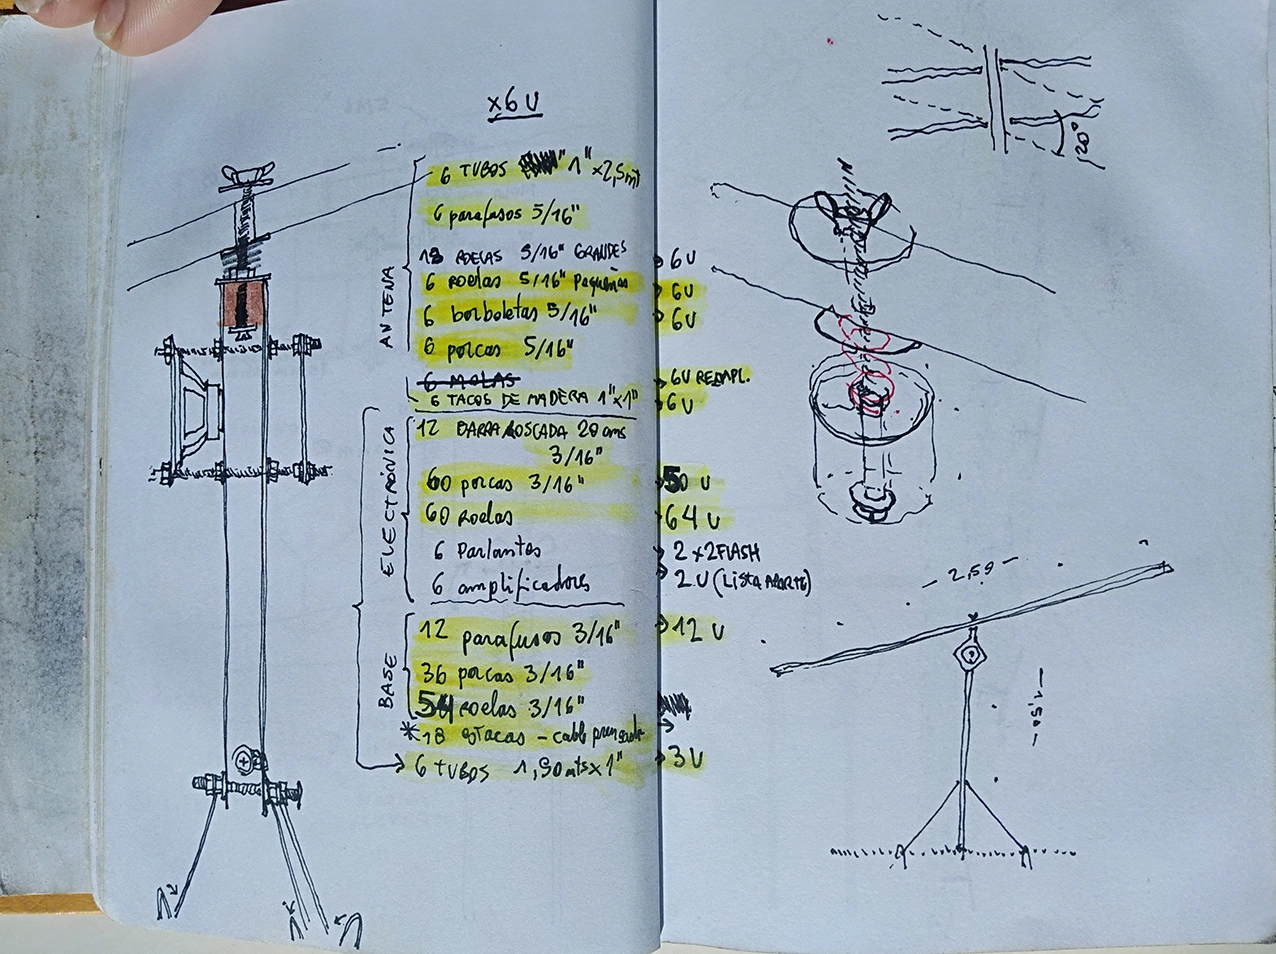 x6 U
ANTENA
6 TUBOS 1" x2,5mt
6 parafusos 5/16"
18 ROELAS 5/16" GRANDES → 6 U
6 Roelas 5/16" Pequeñas → 6U
6 borboletas 5/16" → 6U
6 porcas 5/16"
6 MOLAS → 6U REMPL.
6 TACOS DE MADERA 1"x1" → 6U
ELECTRÓNICA
12 BARRA ROSCADA 20 cms
3/16"
60 porcas 3/16" → 50 U
60 Roelas → 64 U
6 Parlantes → 2 x2FLASH
6 amplificadores → 2 U (LISTA APARTE)
BASE
12 parafusos 3/16" → 12 U
36 porcas 3/16"
54 roelas 3/16"
*18 estacas - cable prensado →
→ 6 TUBOS 1,50mts x 1" → 3U
20°
- 2,50 -
- 1,50 -